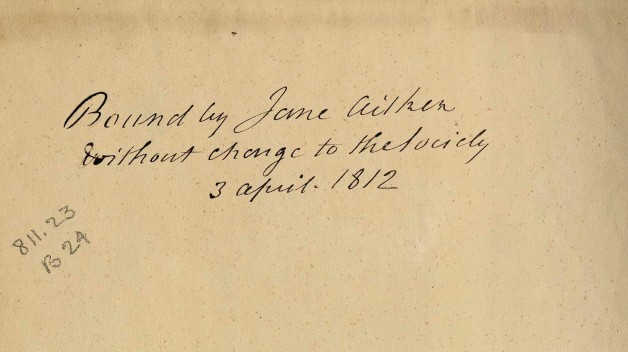 Bound by Jane Aitken
without charge to the Society
3 april. 1812
811.23
B 24